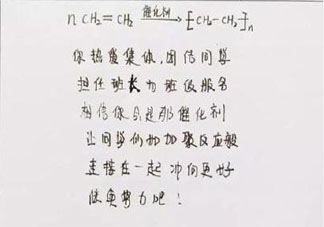 n CH₂=CH₂ 催化剂→ [CH₂-CH₂]n
你热爱集体,团结同学
担任班长为班级服务
相信你会是那催化剂
让同学们如加聚反应般
连接在一起冲向更好
继续努力吧!